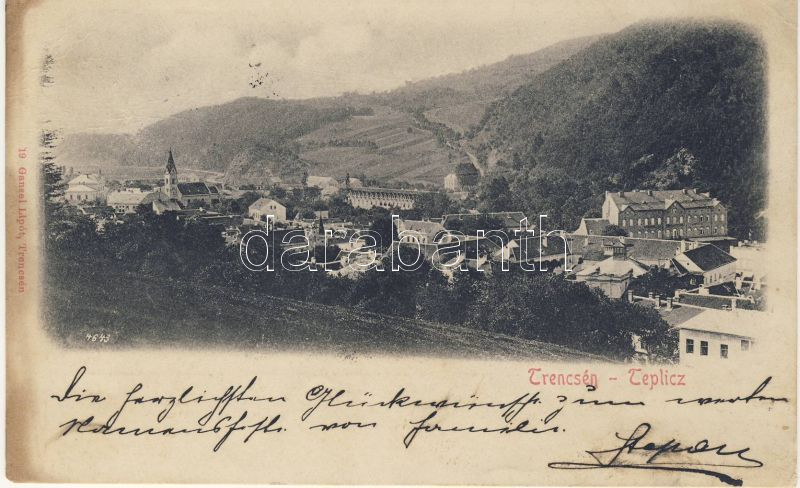 19 Gansel Lipót, Trencsén
darabanth
4643
Trencsén - Teplicz
Die herzlichsten Glückwünsche zum werten
Namensfeste von Familie
Stepan